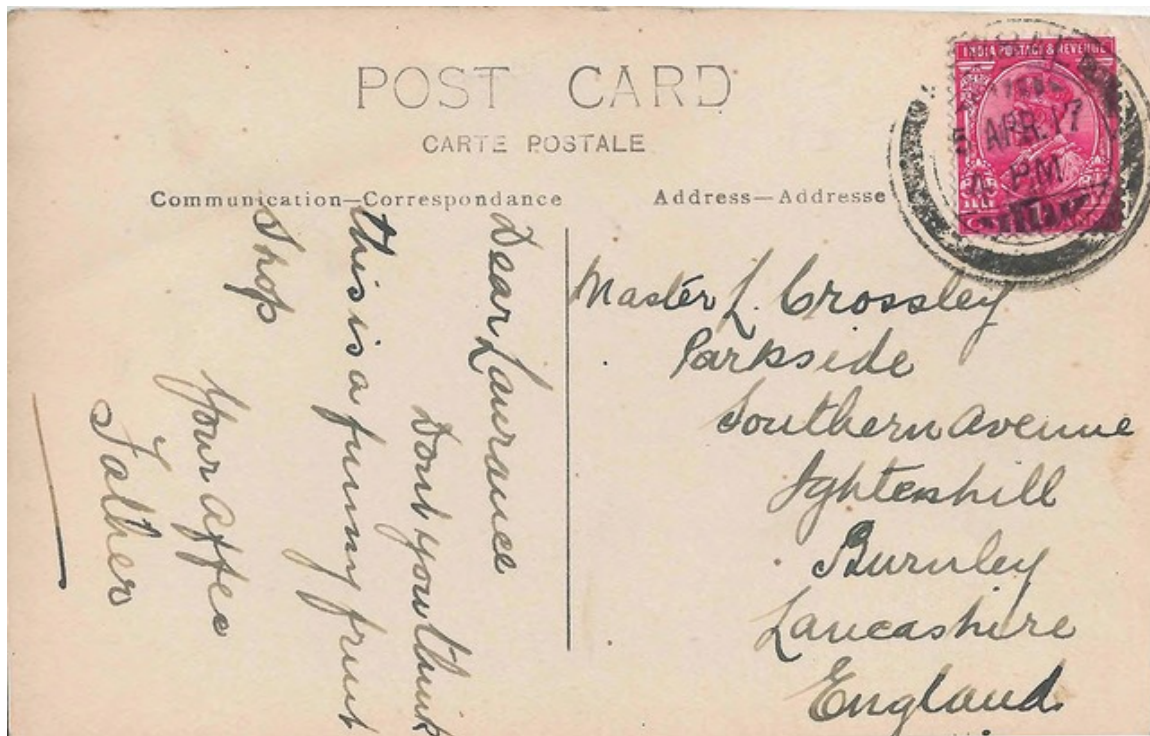 POST CARD
CARTE POSTALE
Communication—Correspondance
Address—Addresse
INDIA POSTAGE & REVENUE
5 APR. 17
PM
Dear Laurance
Dont you think
this is a funny fruit
Shop
Your affec
Father
Master L. Crossley
Parkside
Southern Avenue
Ightenhill
Burnley
Lancashire
England